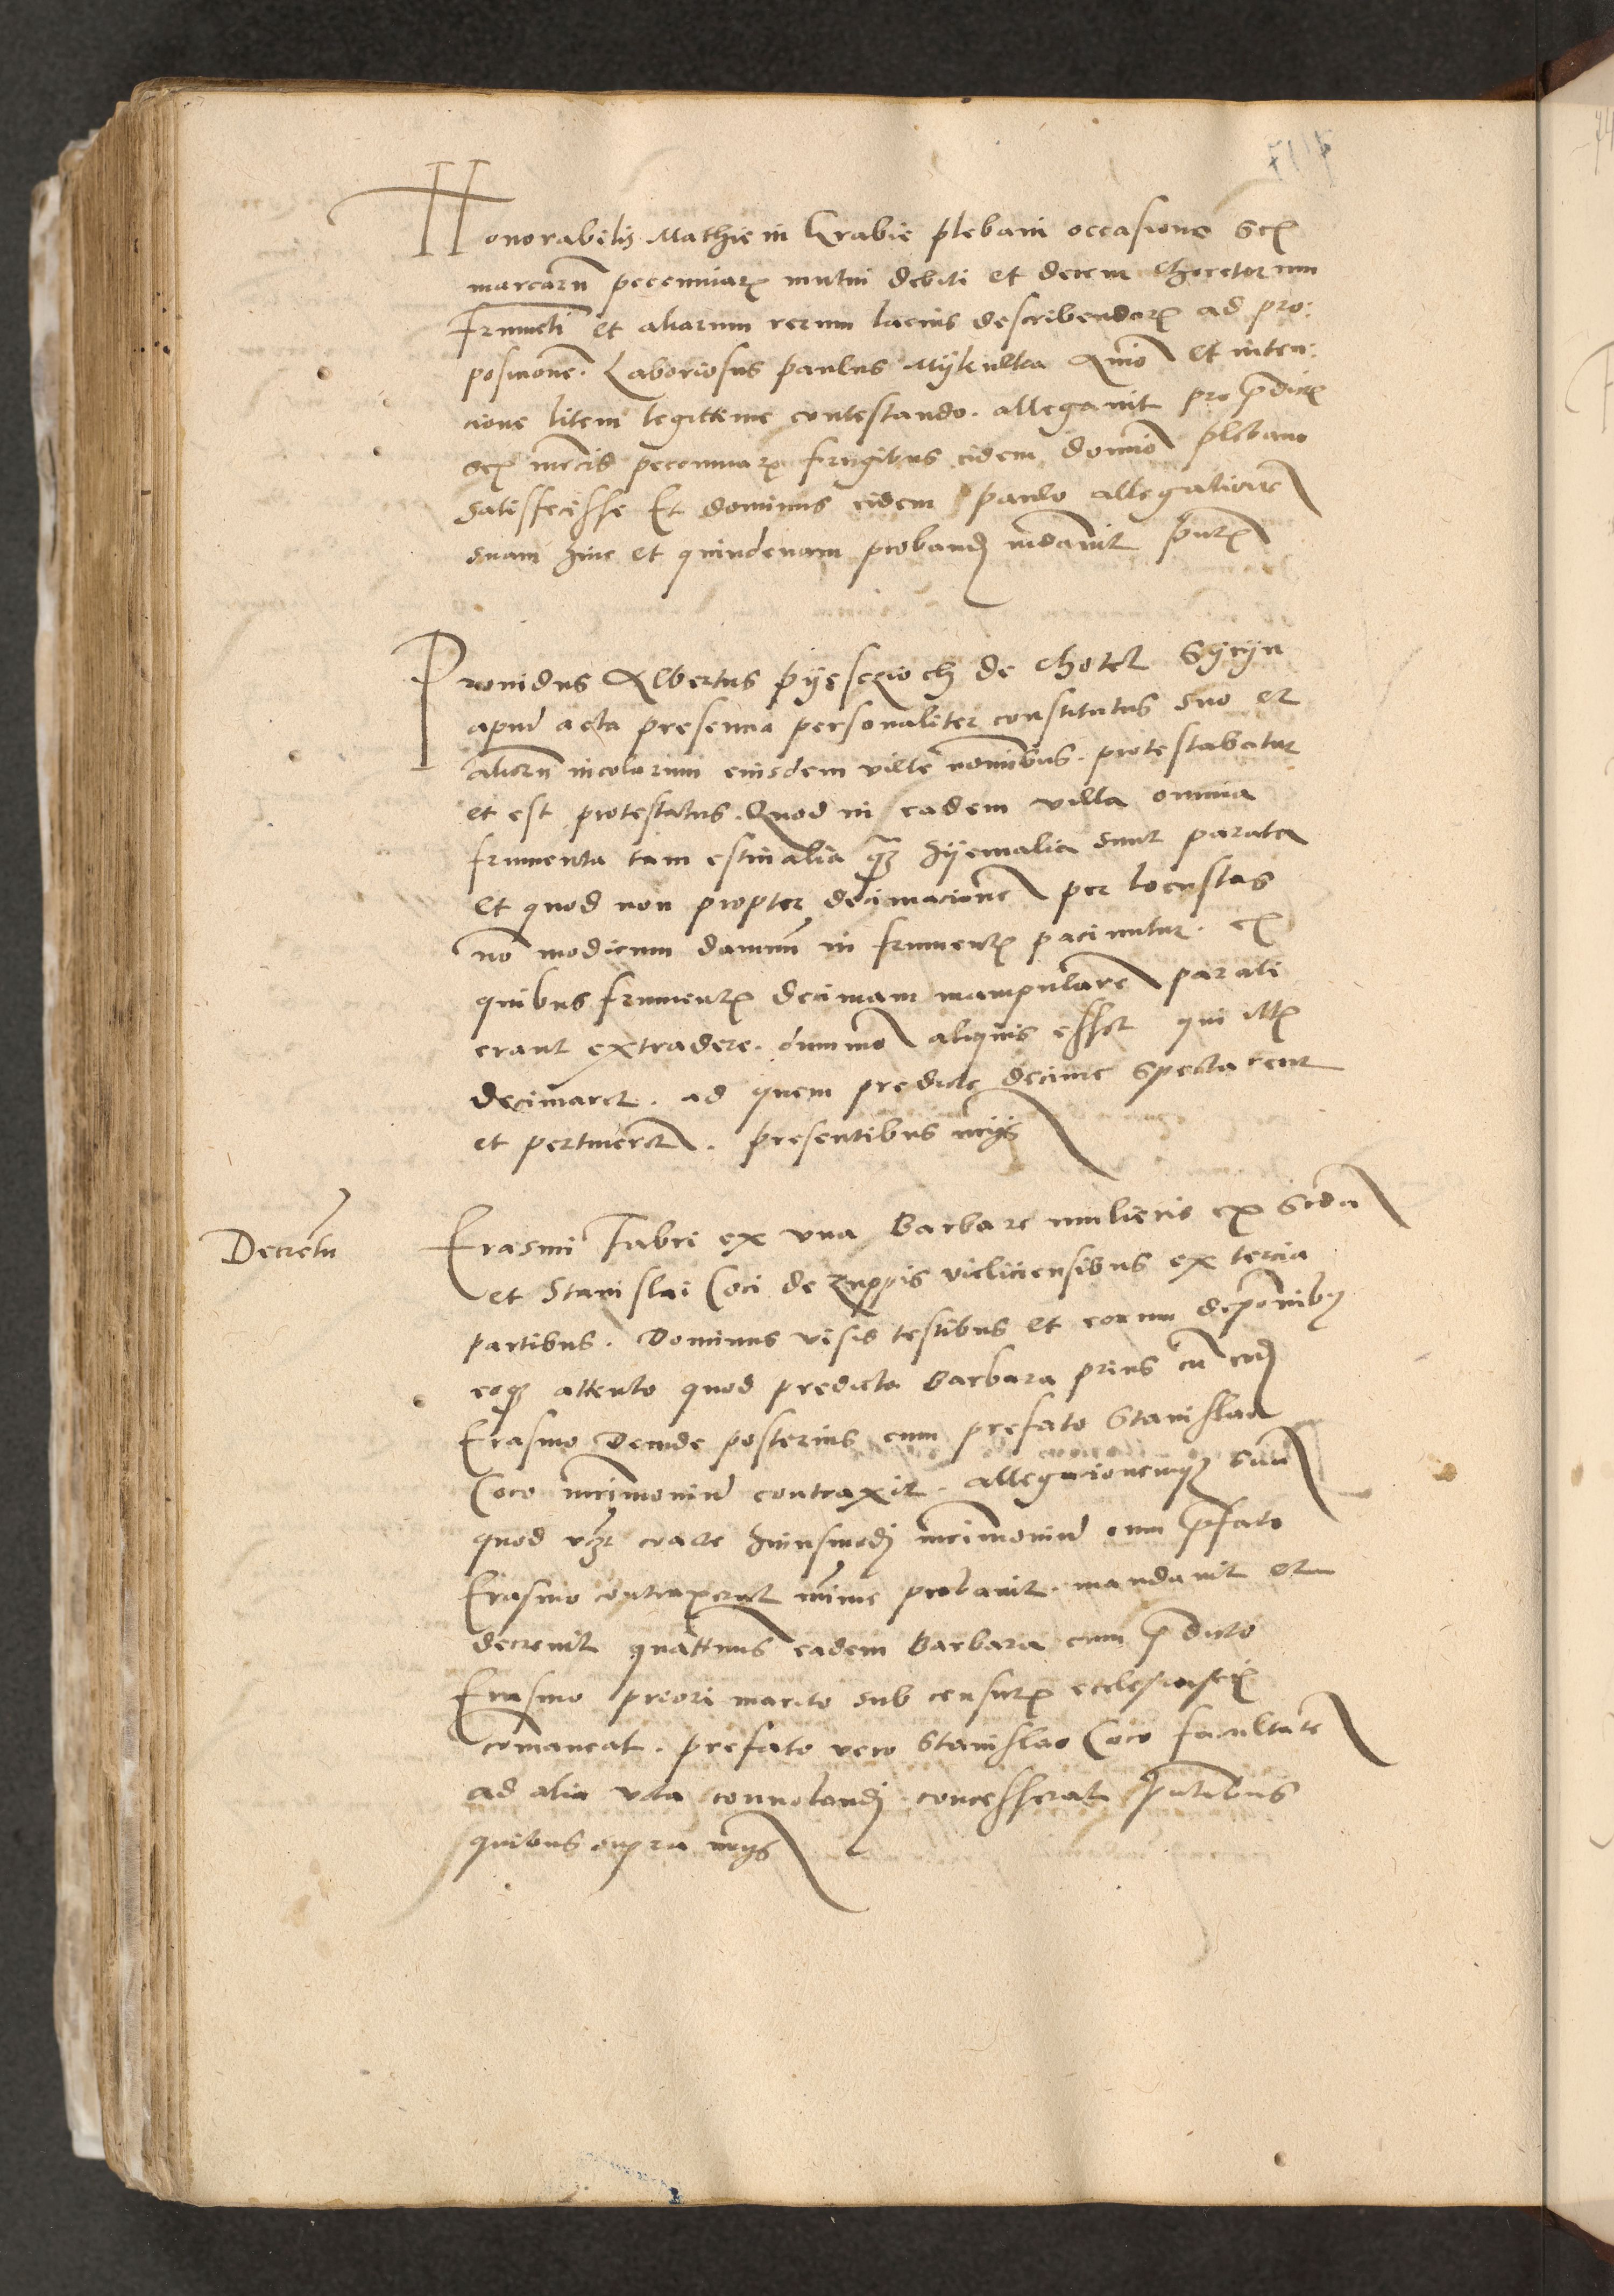 Honorabilis Mathie in Krabie plebani occasione sex
marcaru pecuniar mutui debiti et decem choretorum
frumeti et aliarum rerum lacius describendor ad pro:
posicione. Laboriosus paulus Mykultha animo et inten:
cione litem legittime contestando. allegavit pro predict
sex mrcis pecuniar frugibus eidem domino plebano
satisfecisse Et dominus eidem paulo allegatione
suam hinc et quindenam proband mdavit pntib
Providus Albertus pyesczioch de Chotel Gycyn
apud acta presencia personaliter constitutus suo et
alioru incolarum eiusdem ville nominibus. protestabatur
et est protestatus. Quod in eadem villa omnia
frumenta tam estivalia qz hyemalia sunt parata
et quod non propter decimacione per locustas
no modicum damnu in frument paciuntur. ex
quibus frument decimam manipulare parati
erant extradere. dummo aliquis esset qui ill
decimaret. ad quem predicte decime spectarent
et pertineret. presentibus
Decretu
Erasmi Fabri ex una Barbare mulieris ex scda
et Stanislai Coci de zuppis vieliciensibus ex tercia
partibus. Dominus visis testibus et eorum deponibus
eoqz attento quod predicta Barbara prius cu eod
Erasmo deinde posterius cum prefato Stanislao
Coco mrimoniu contraxit. allegacionemqz sua
quod vcz coacte huiusmodi mrimoniu cum pfato
Erasmo contraxerat mime probavit. mandavit et
decrevit quattenus eadem Barbara cum pdicto
Erasmo priori marito sub censur ecclesiastic
comaneat. prefato vero Stanislao Coco facultate
ad alia vota convolandi concesserat pntibus
quibus supra